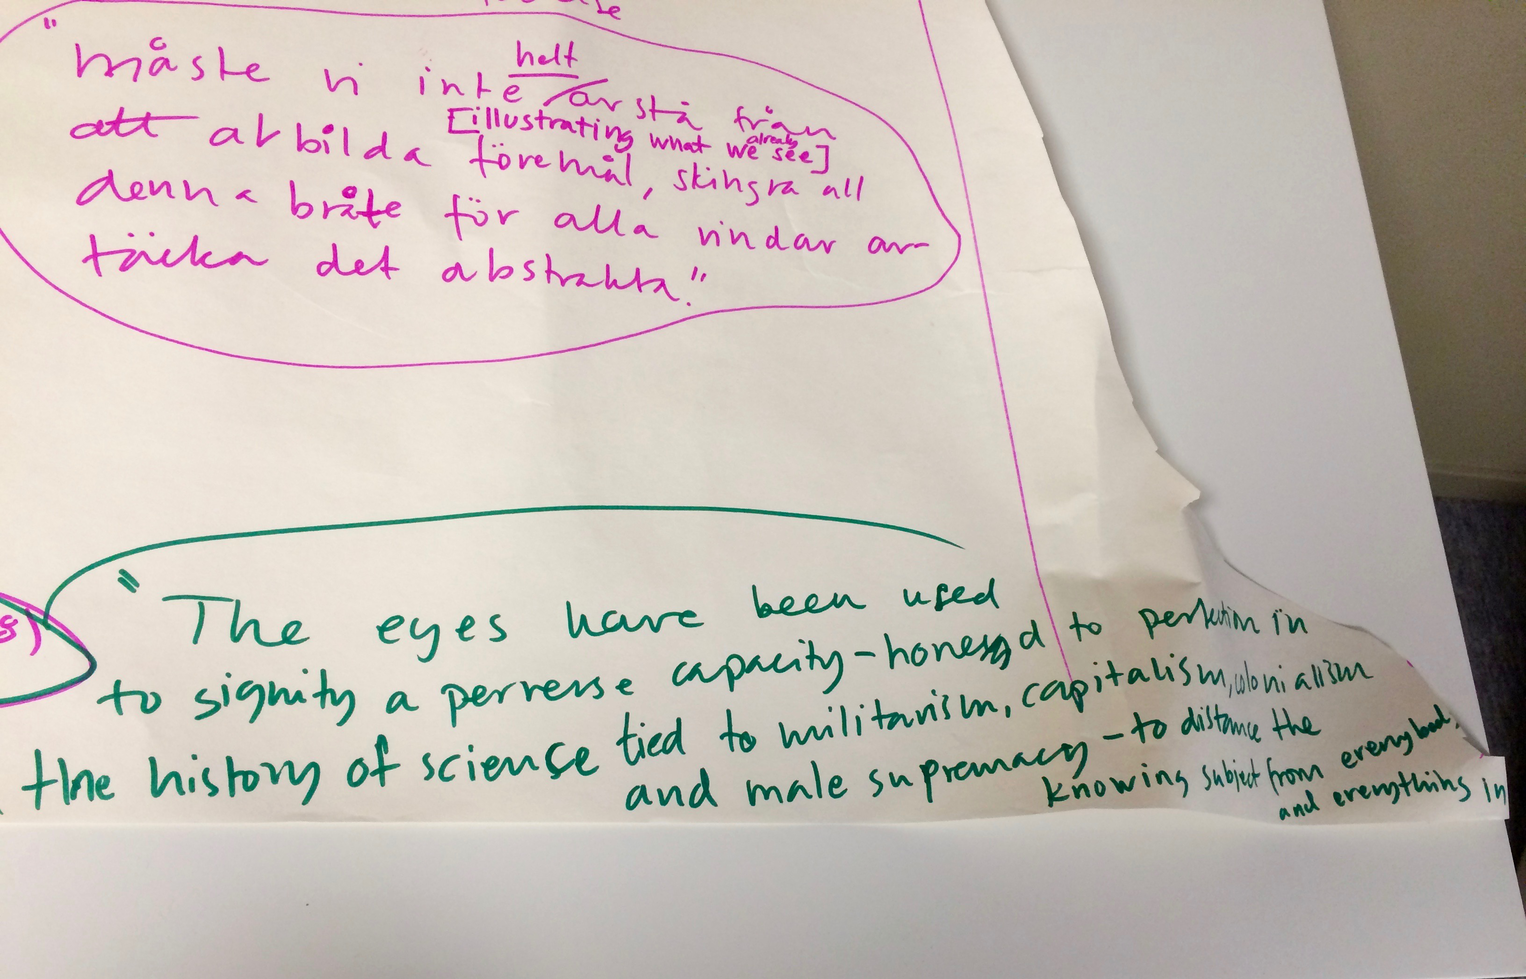 "måste vi inte helt avstå från
att avbilda föremål, skingra all
[illustrating what we already see]
denna bråte för alla vindar av-
täcka det abstrakta."
"The eyes have been used
to signify a perverse capacity-honed to perfection in
the history of science tied to militarism, capitalism, colonialism
and male supremacy - to distance the
knowing subject from everybody
and everything in